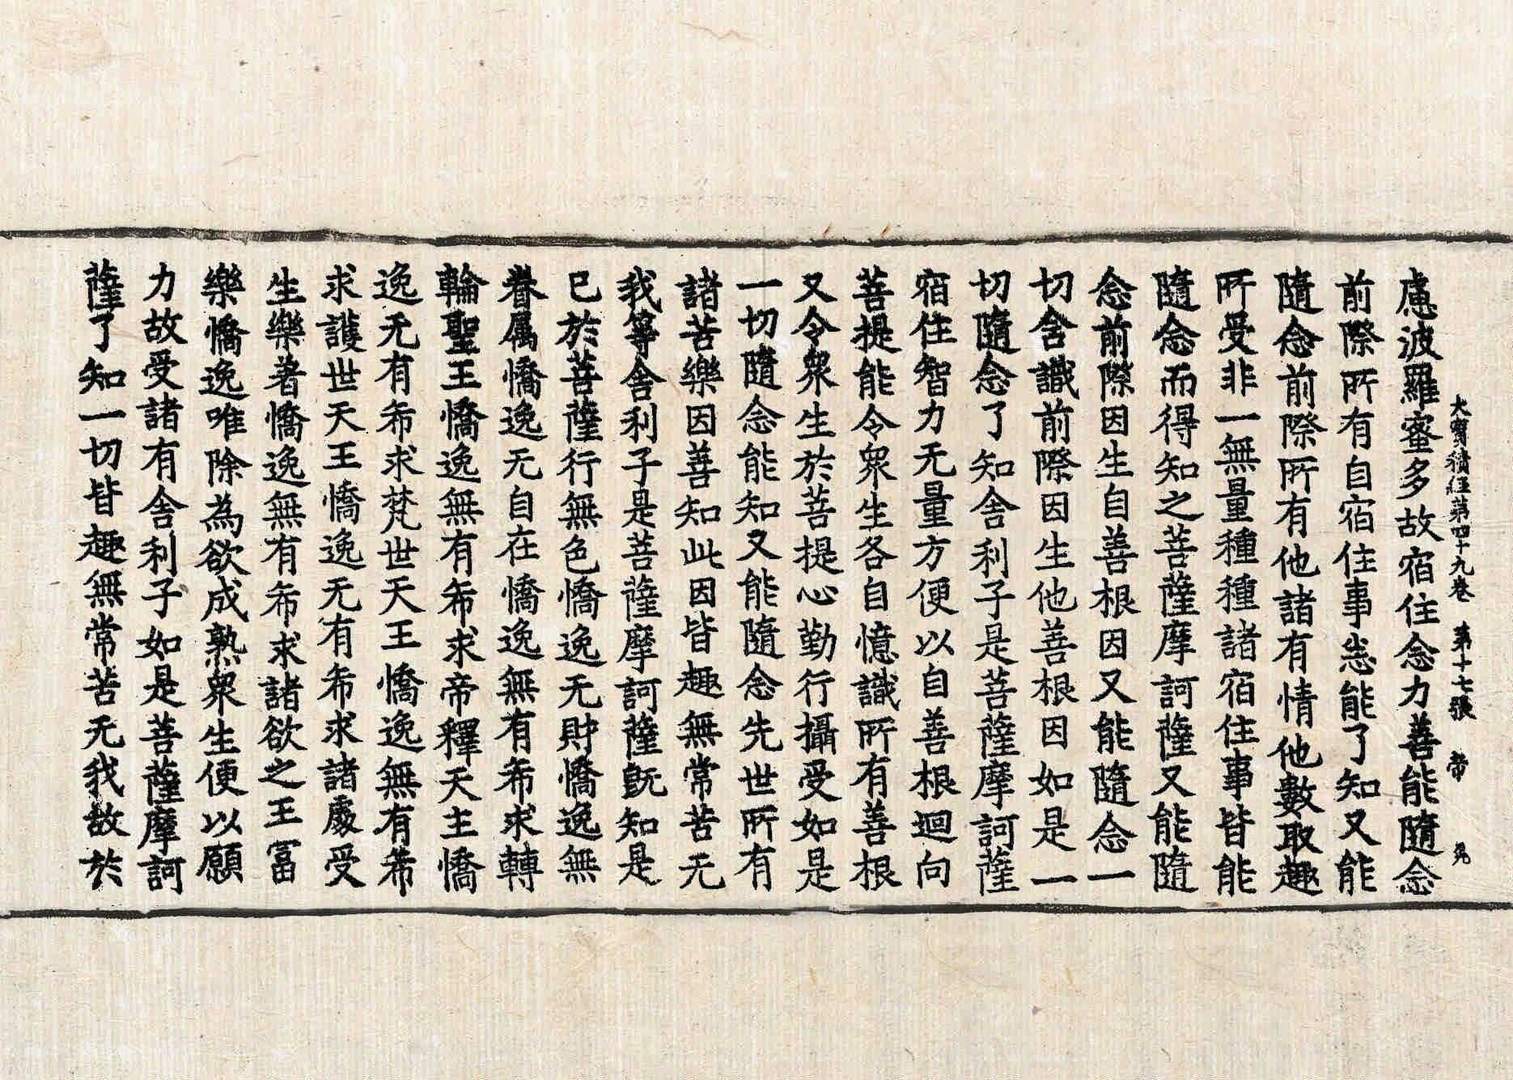 大寶積經第四十九卷 第十七張 帝
慮波羅蜜多故宿住念力善能隨念
前際所有自宿住事悉能了知又能
隨念前際所有他諸有情他數取趣
所受非一無量種種諸宿住事皆能
隨念而得知之菩薩摩訶薩又能隨
念前際因生自善根因又能隨念一
切含識前際因生他善根因如是一
切隨念了知舍利子是菩薩摩訶薩
宿住智力无量方便以自善根迴向
菩提能令眾生各自憶識所有善根
又令眾生於菩提心勤行攝受如是
一切隨念能知又能隨念先世所有
諸苦樂因善知此因皆趣無常苦无
我等舍利子是菩薩摩訶薩既知是
已於菩薩行無色憍逸无財憍逸無
眷属憍逸无自在憍逸無有希求轉
輪聖王憍逸無有希求帝釋天主憍
逸无有希求梵世天王憍逸無有希
求護世天王憍逸无有希求諸處受
生樂著憍逸無有希求諸欲之王冨
樂憍逸唯除為欲成熟眾生便以願
力故受諸有舍利子如是菩薩摩訶
薩了知一切皆趣無常苦无我故於